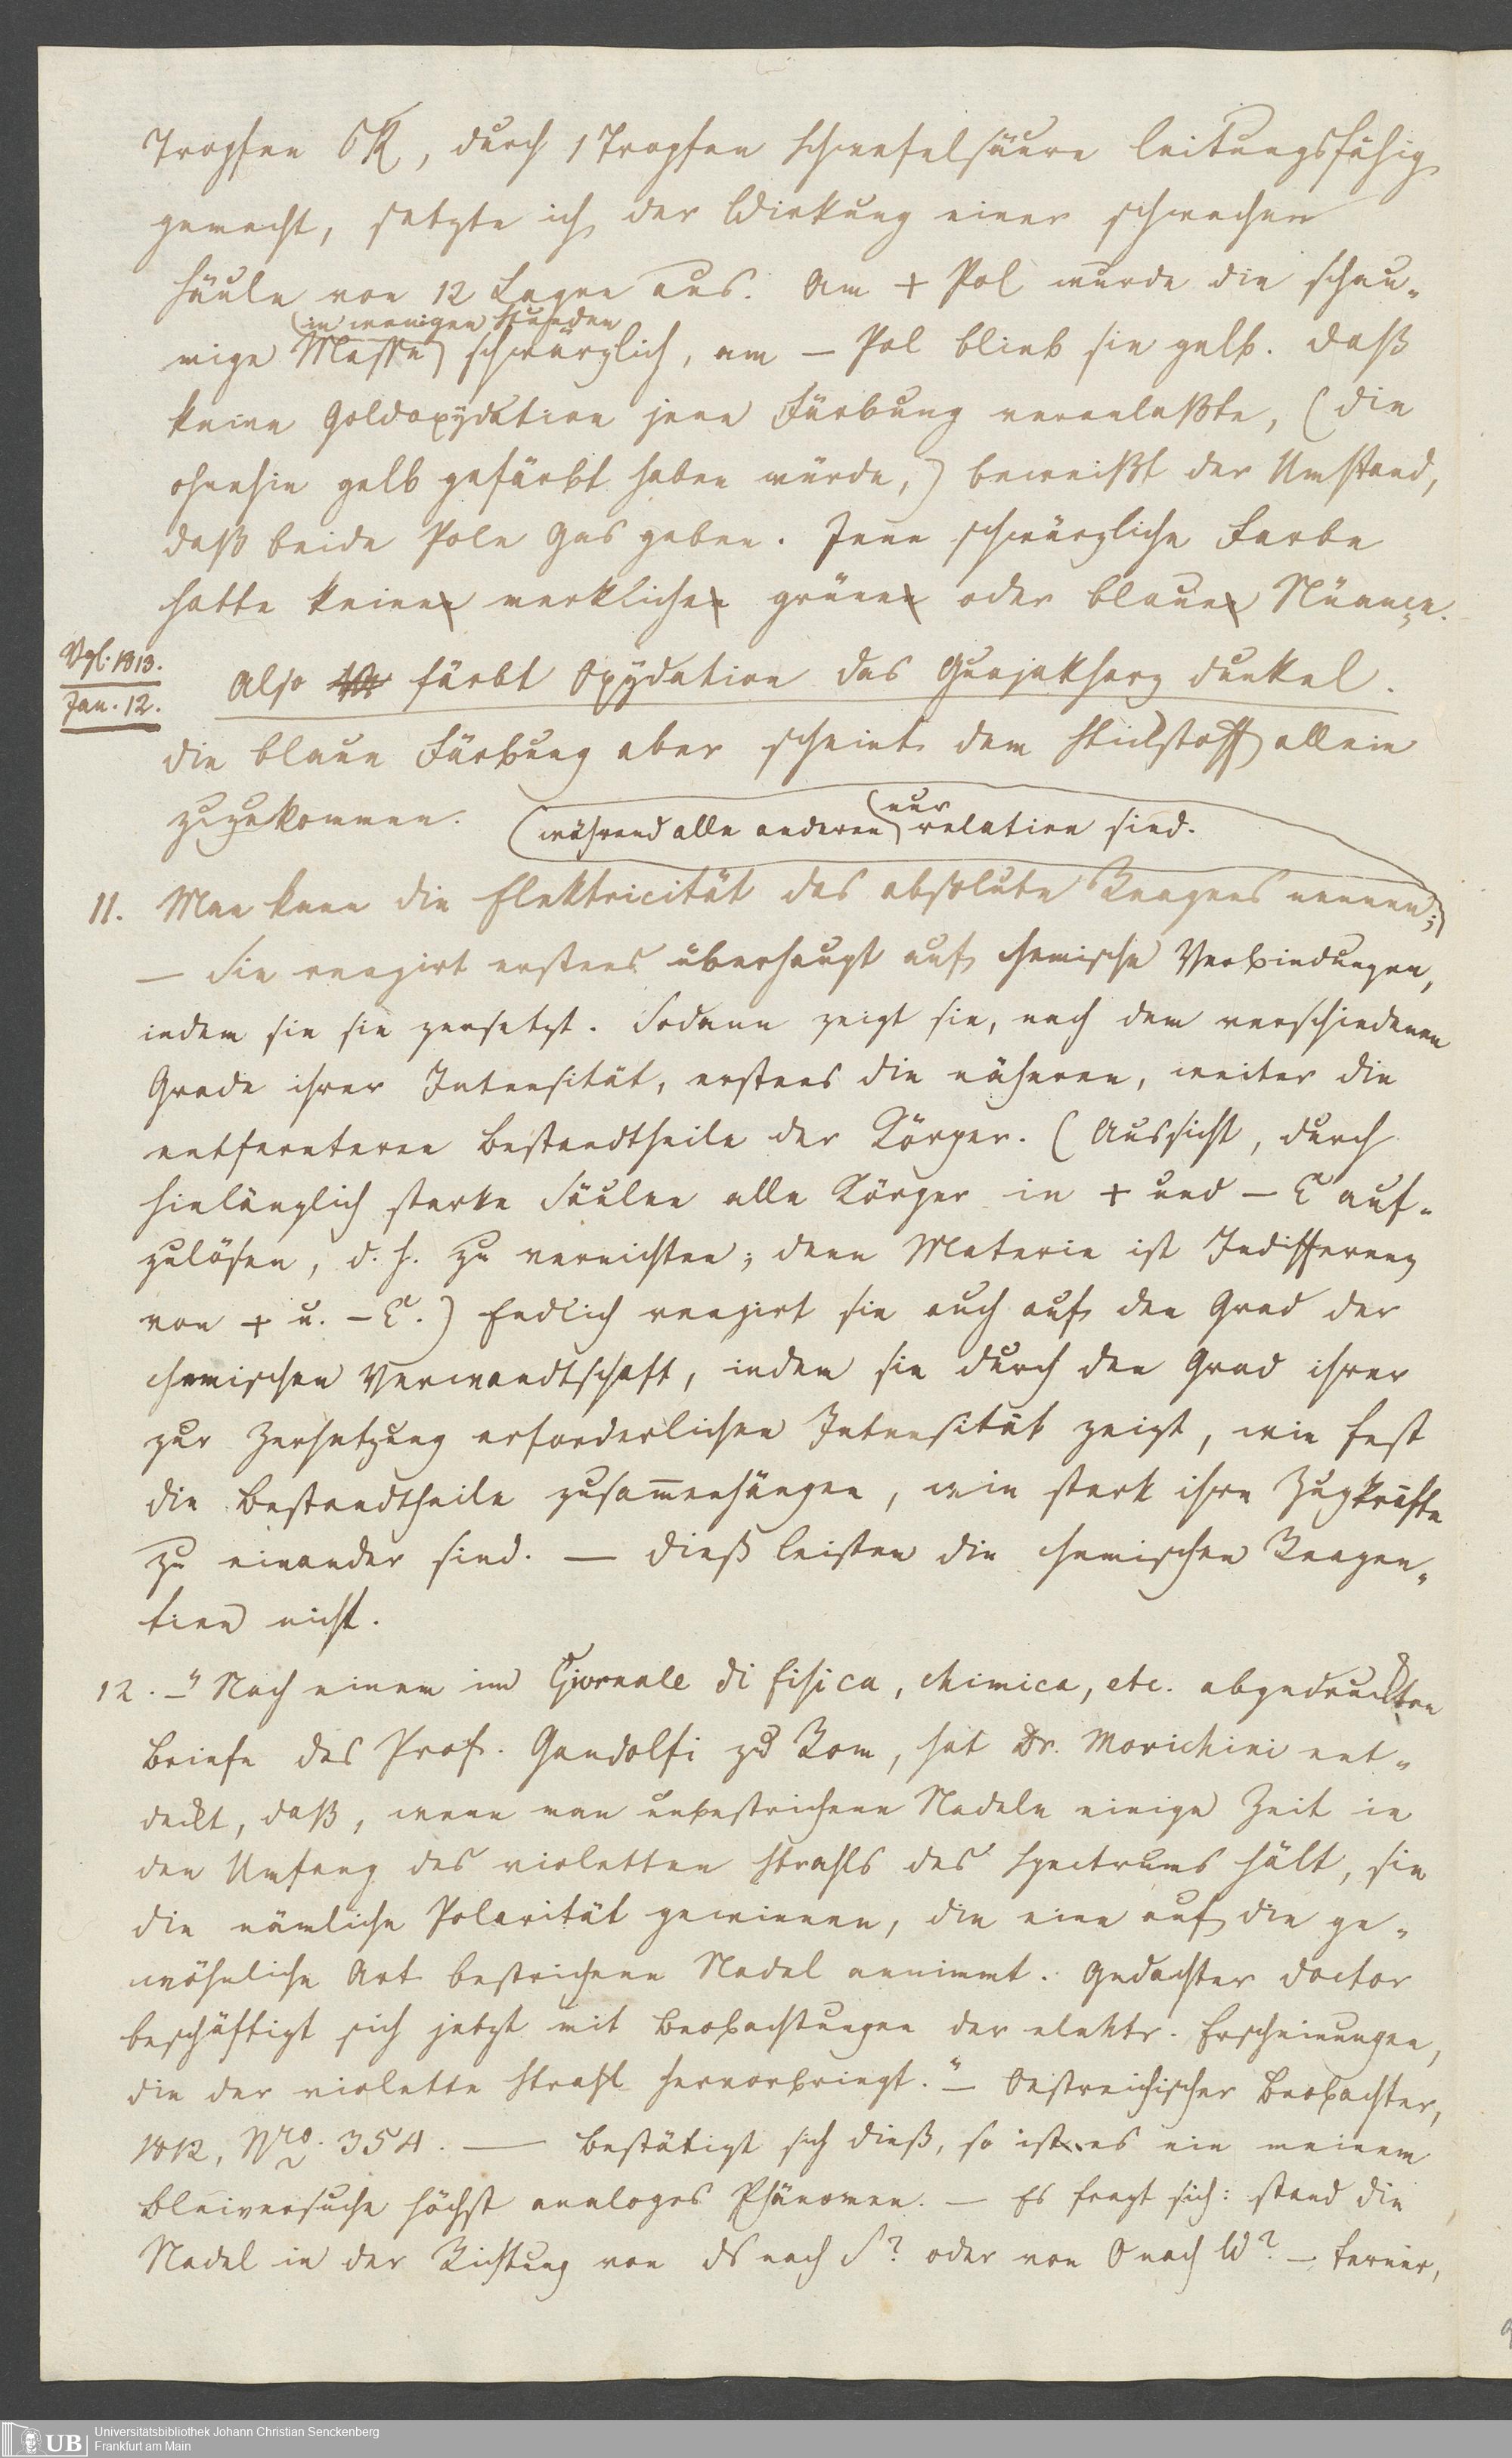 Tropfen OR, durch 1 Tropfen Schwefelsäure leitungsfähig
gemacht, setzte ich der Wirkung einer schwachen
Säule von 12 Lagen aus. Am + Pol wurde die schau-
in wenigen Stunden
mige Masse schwärzlich, am — Pol blieb sie gelb. Daß
keine Goldoxydation jene Färbung veranlaßte, (die
ohnehin gelb gefärbt haben würde,) beweißt der Umstand,
daß beide Pole Gas gaben. Jene schwärzliche Farbe
hatte keinen merklichen grünen oder blauen Nüance.
Vgl. 1813.
Jan. 12.
Also färbt Oxydation das Guajakharz dunkel.
die blaue Färbung aber scheint dem Stickstoff allein
zuzukommen.
nur
während alle anderen relative sind.
11. Man kann die Elektricität das absolute Reagens nennen;
— Sie reagirt erstens überhaupt auf chemische Verbindungen,
indem sie sie zersetzt. Sodann zeigt sie, nach dem verschiedenen
Grade ihrer Intensität, erstens die näheren, weiter die
entfernteren Bestandtheile der Körper. (Aussicht, durch
hinlänglich starke Säulen alle Körper in + und — E auf-
zulösen, d. h. zu vernichten; denn Materie ist Indifferenz
von + u. — E.) Endlich reagirt sie auch auf den Grad der
chemischen Verwandtschaft, indem sie durch den Grad ihrer
zur Zersetzung erforderlichen Intensität zeigt, wie fest
die Bestandtheile zusammenhängen, wie stark ihre Zugkräfte
zu einander sind. — Dieß leisten die chemischen Reagen-
tien nicht.
12. — "Nach einem im Giornale di fisica, chimica, etc. abgedruckten
Briefe des Prof. Gandolfi zu Rom, hat Dr. Morichini ent-
deckt, daß, wenn man unbestrichene Nadeln einige Zeit in
den Umfang des violetten Strahls des Spectrums hält, sie
die nämliche Polarität gewinnen, die eine auf die ge-
wöhnliche Art bestrichene Nadel annimmt. Gedachter Doctor
beschäftigt sich jetzt mit Beobachtungen der elektr. Erscheinungen,
die der violette Strahl hervorbringt." — Oestreichischer Beobachter,
1812, Nro. 354. — Bestätigt sich dieß, so ist es ein meinem
Bleiversuche höchst analoges Phänomen. — Es fragt sich: stand die
Nadel in der Richtung von N nach S? oder von O nach W? — Ferner,
Universitätsbibliothek Johann Christian Senckenberg
Frankfurt am Main
UB